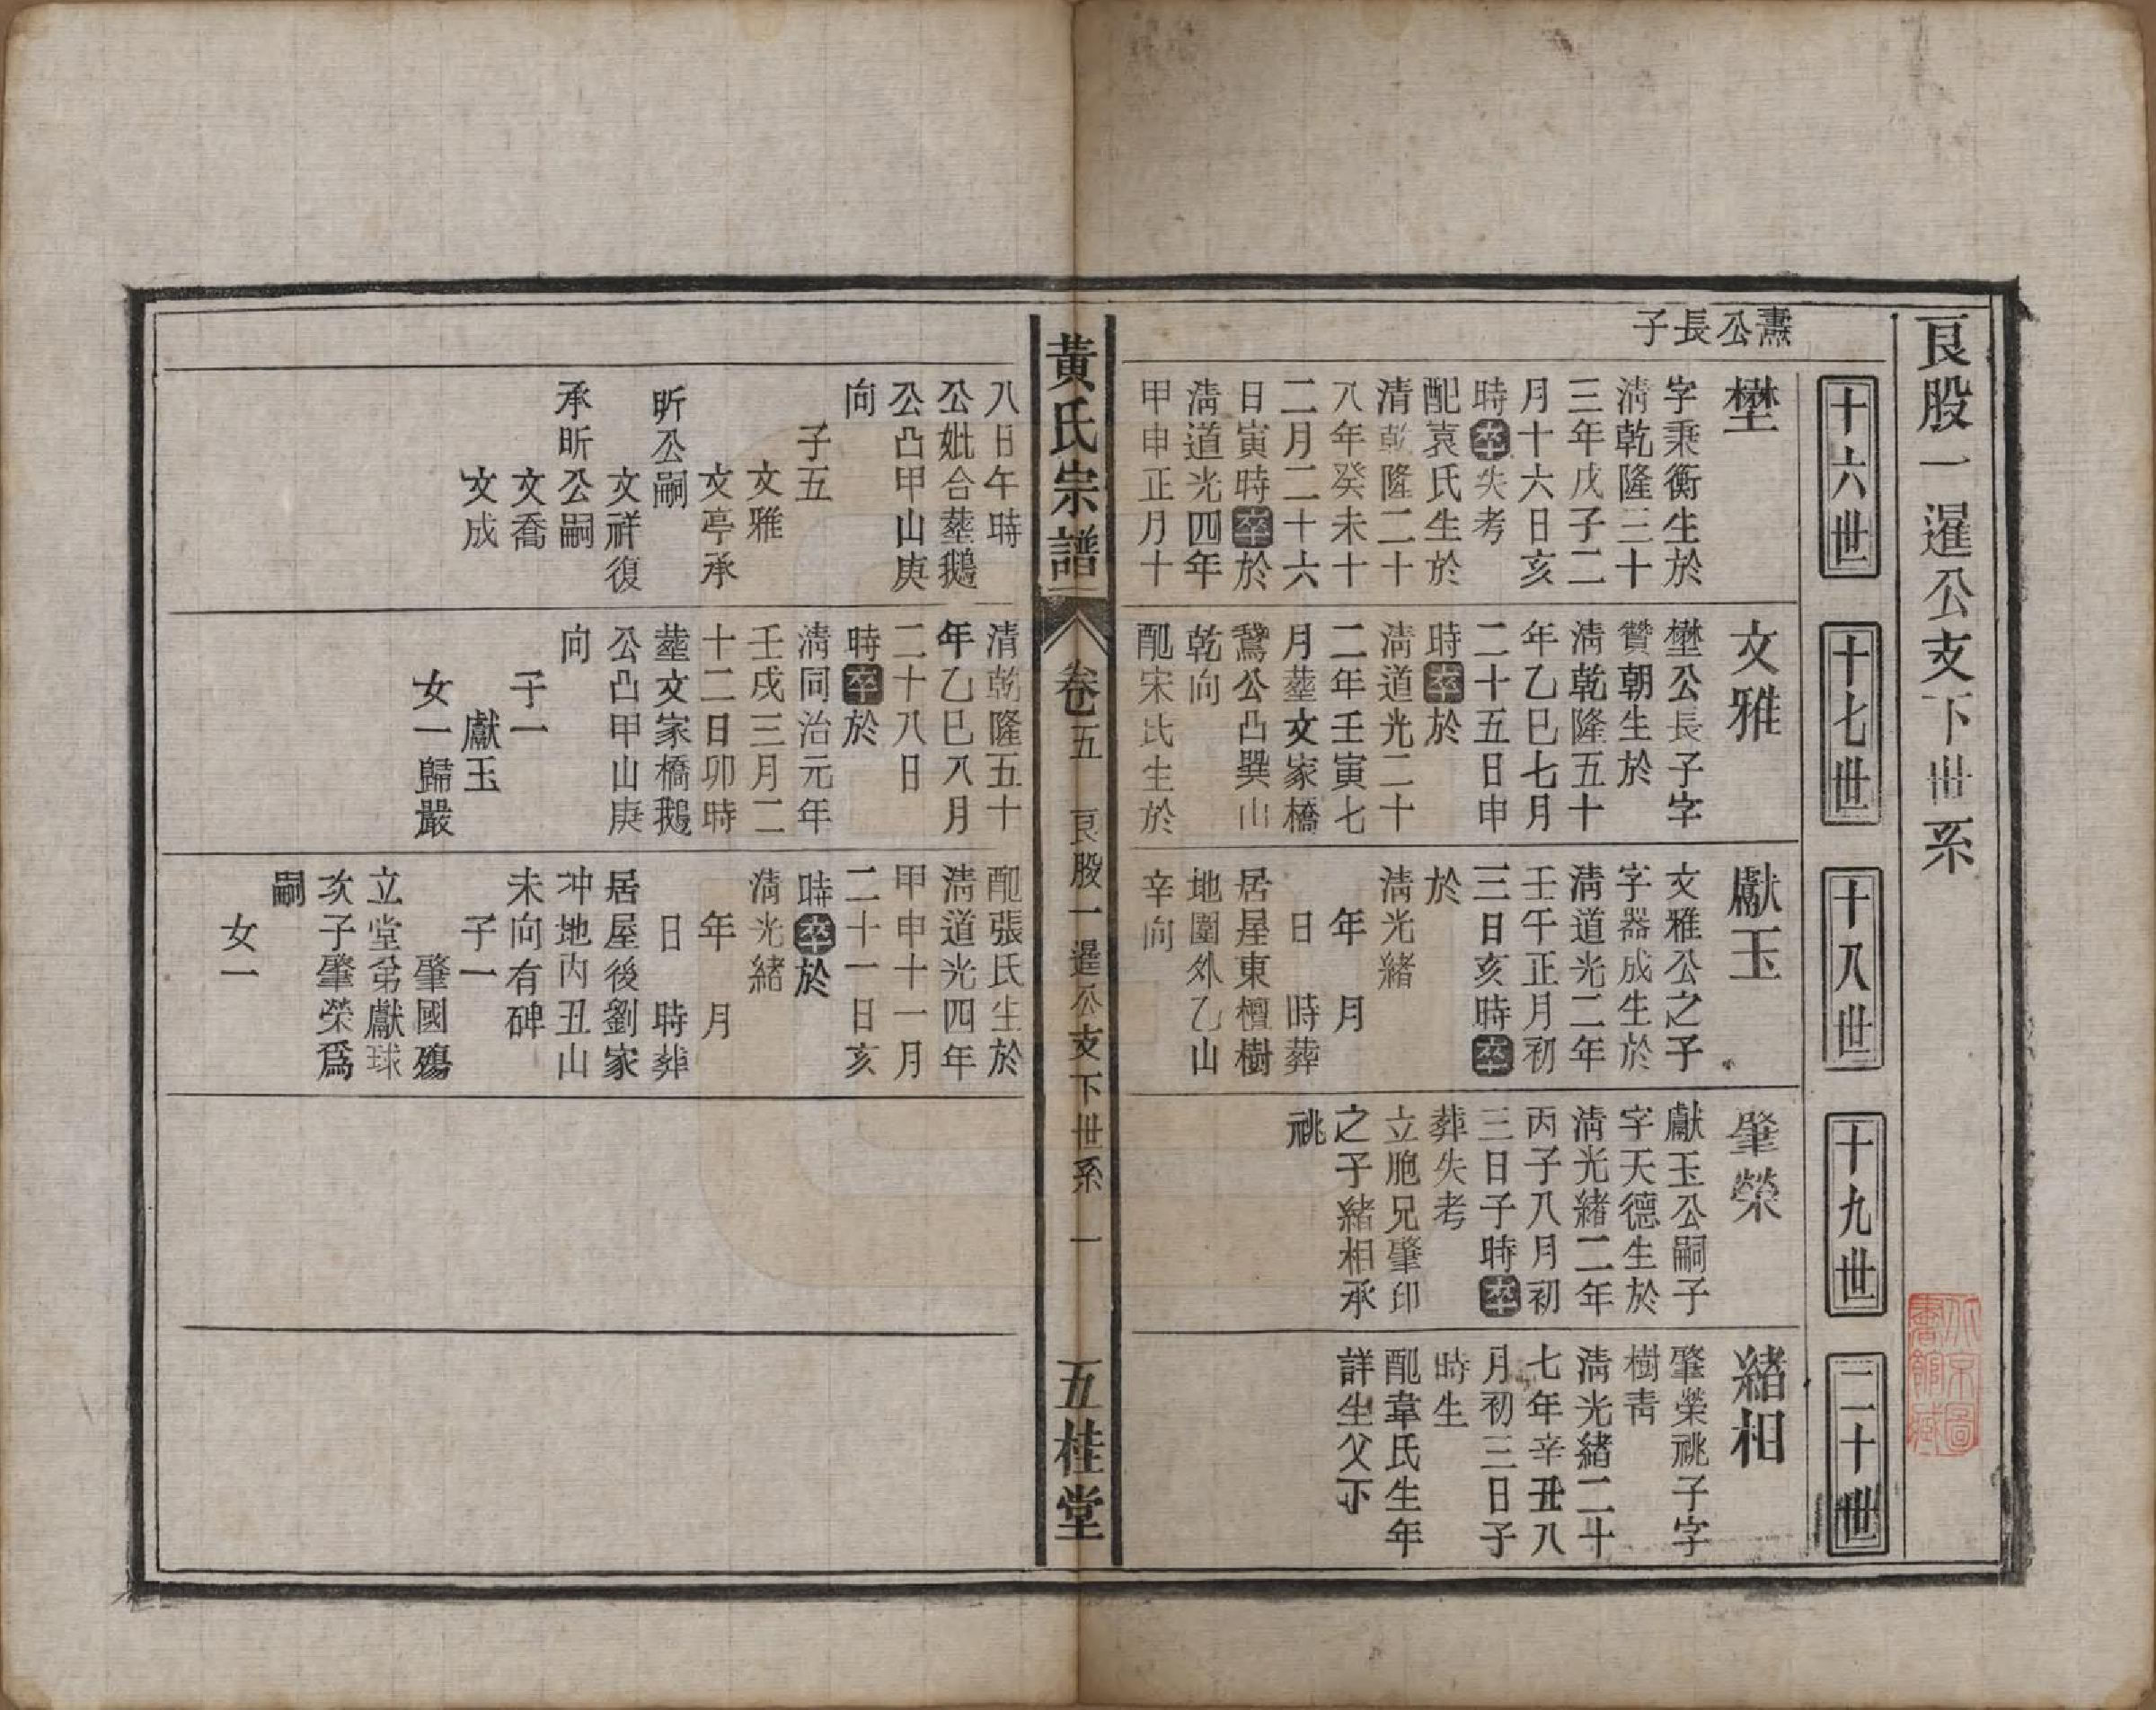 良股一暹公支下世系
十六世
十七世
十八世
十九世
二十世
燾公長子
壄
字秉衡生於
淸乾隆三十
三年戊子二
月十六日亥
時卒失考
配袁氏生於
清乾隆二十
八年癸未十
二月二十六
日寅時卒於
淸道光四年
甲申正月十
文雅
壄公長子字
贊朝生於
淸乾隆五十
年乙巳七月
二十五日申
時卒於
淸道光二十
二年壬寅七
月塟文家橋
鵞公凸巽山
乾向
配宋氏生於
獻玉
文雅公之子
字器成生於
淸道光二年
壬午正月初
三日亥時卒
於
淸光緒
年　月
日　時葬
居屋東檀樹
地圍外乙山
辛向
肇榮
獻玉公嗣子
字天德生於
淸光緒二年
丙子八月初
三日子時卒
葬失考
立胞兄肇印
之子緒相承
祧
緒相
肇榮祧子字
樹靑
淸光緖二十
七年辛丑八
月初三日子
時生
配韋氏生年
詳生父下
黃氏宗譜
卷五
良股一暹公支下世系
一
五桂堂
八日午時
公妣合塟鵝
公凸甲山庚
向
子五
文雅
文亭承
昕公嗣
文祥復
承昕公嗣
文喬
文成
清乾隆五十
年乙巳八月
二十八日
時卒於
淸同治元年
壬戌三月二
十二日卯時
塟文家橋鵝
公凸甲山庚
向
子一
獻玉
女一歸嚴
配張氏生於
淸道光四年
甲申十一月
二十一日亥
時卒於
淸光緒
年　月
日　時葬
居屋後劉家
冲地內丑山
未向有碑
子一
肇國殤
立堂弟獻球
次子肇榮爲
嗣
女一